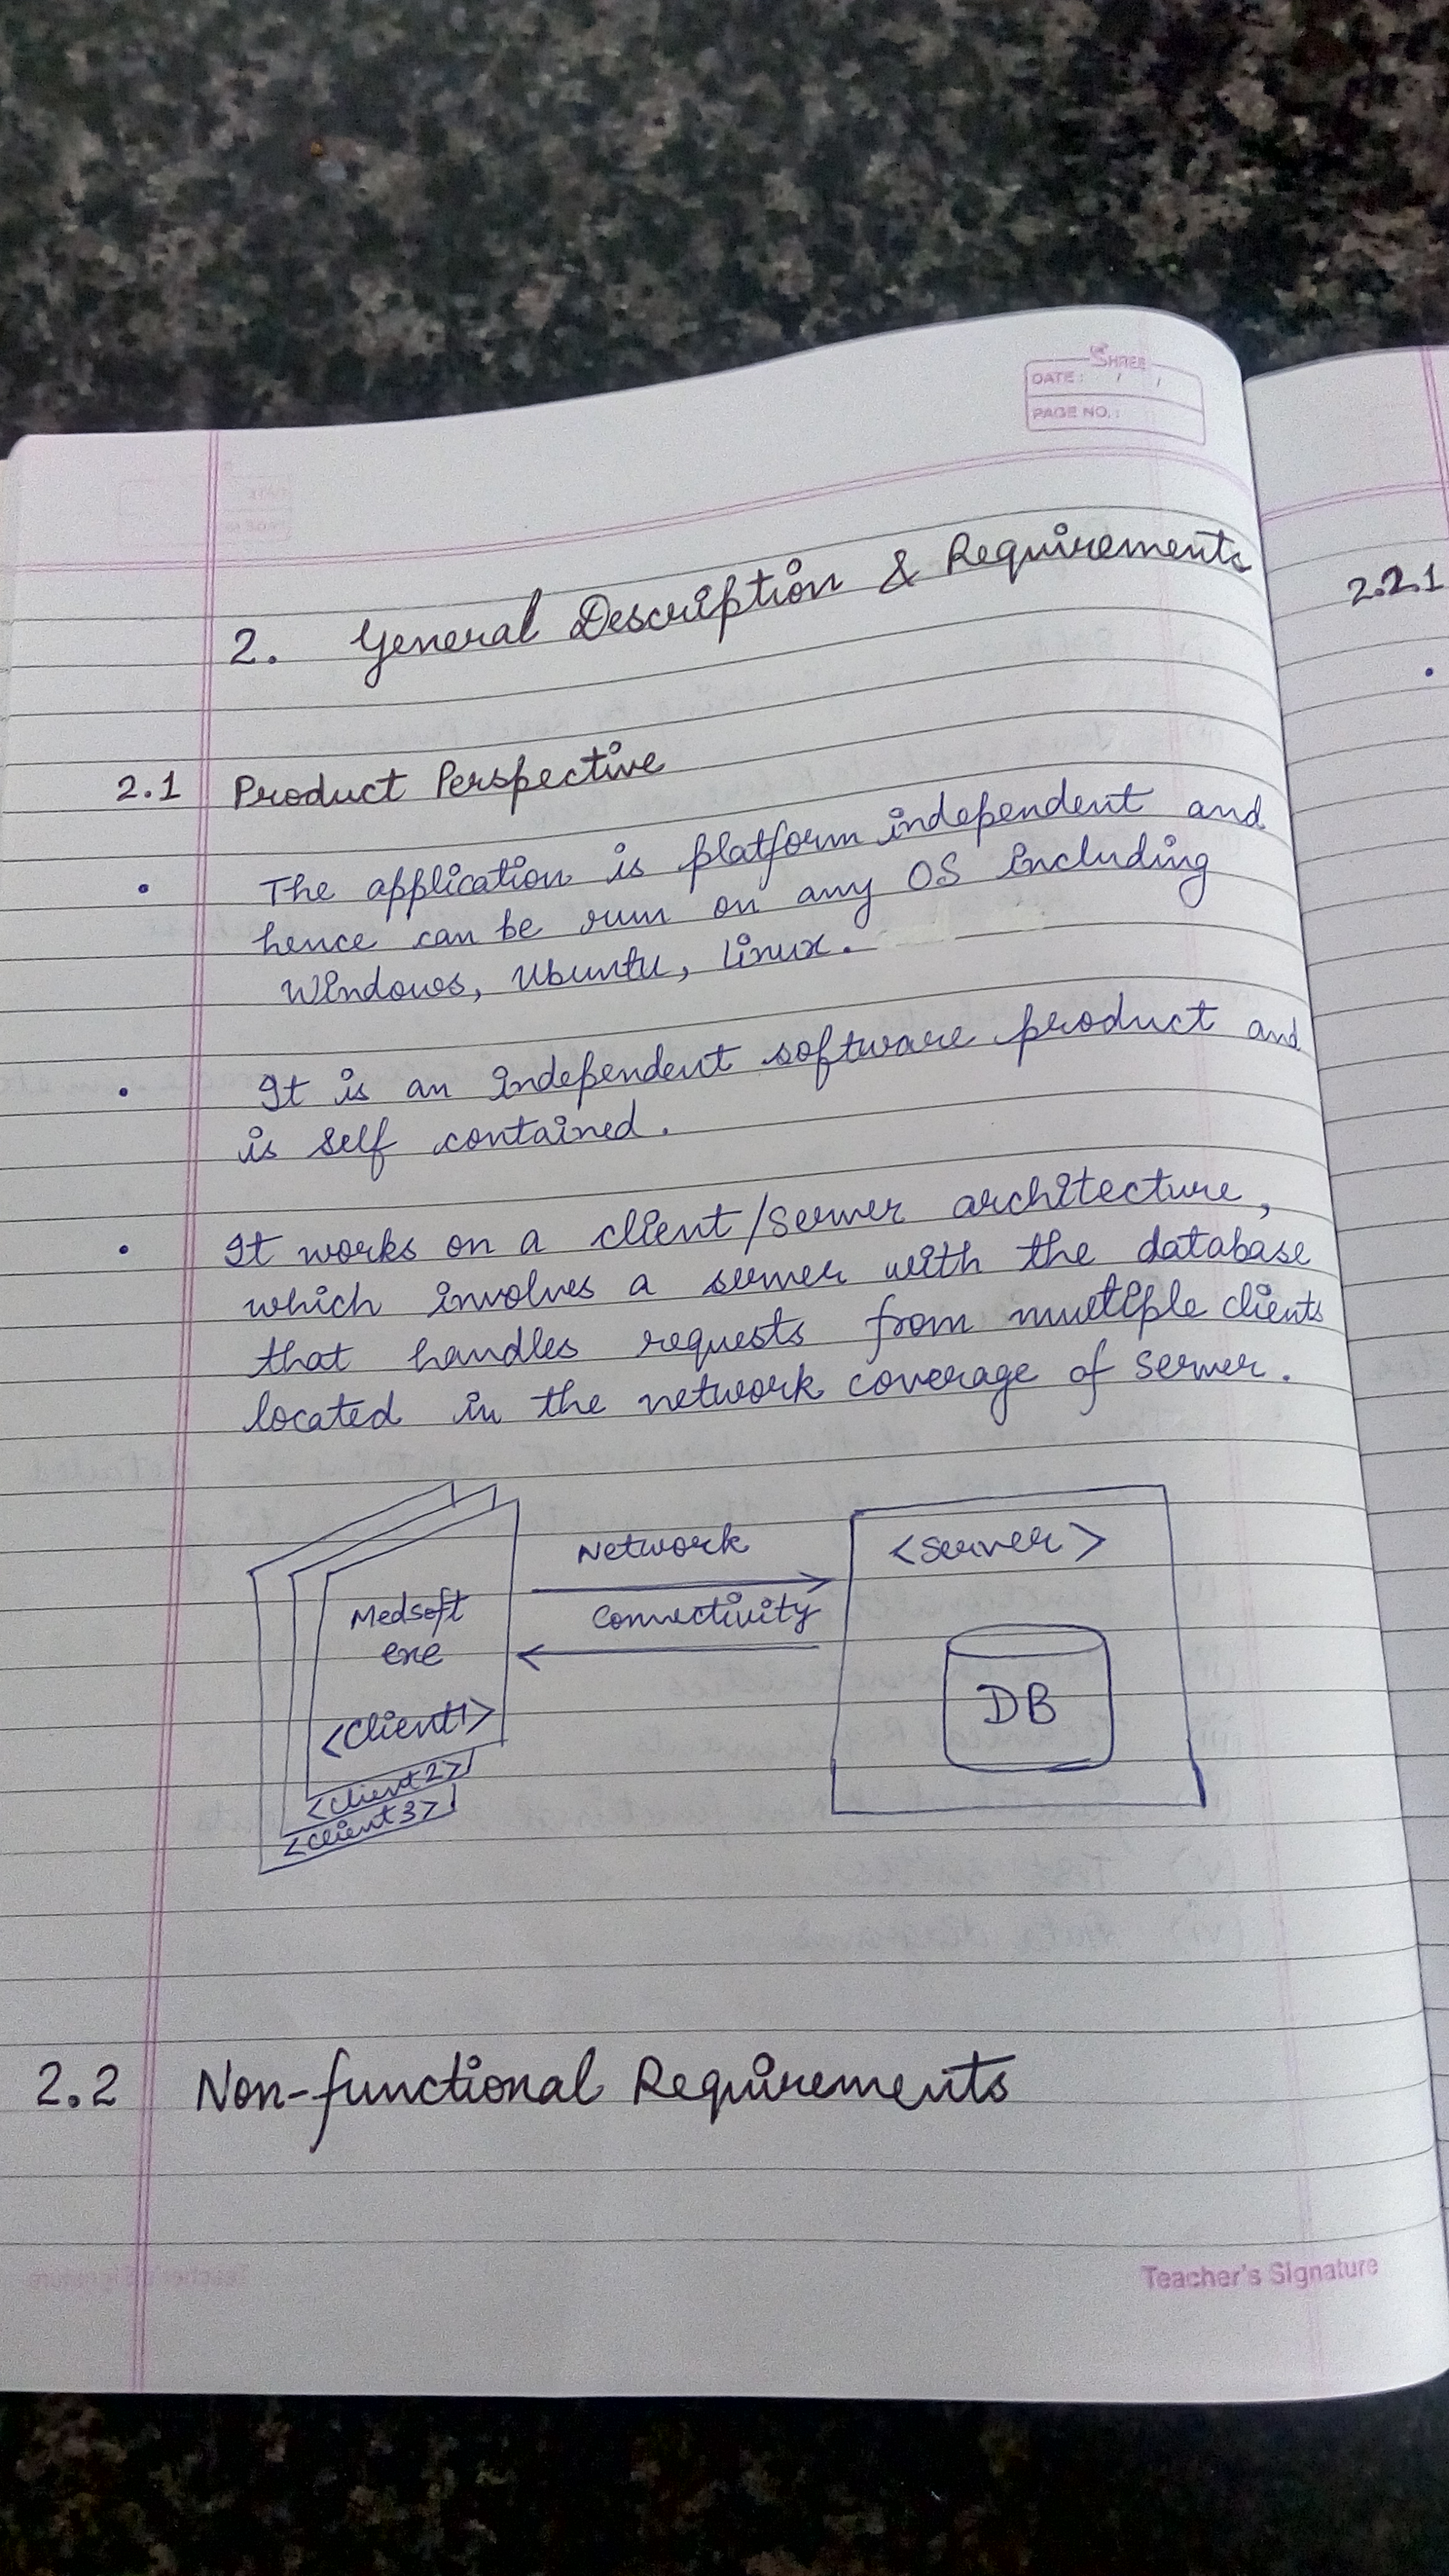 SHREE
DATE: / /
PAGE NO.:
2. General Description & Requirements
2.1 Product Perspective
• The application is platform independent and
hence can be run on any OS including
Windows, Ubuntu, Linux.
• It is an independent software product and
is self contained.
• It works on a client/server architecture,
which involves a server with the database
that handles requests from multiple clients
located in the network coverage of server.
Network
Connectivity
Medsoft
exe
<Client1>
<Client2>
<Client3>
<Server>
DB
2.2 Non-functional Requirements
Teacher's Signature
2.2.1
•